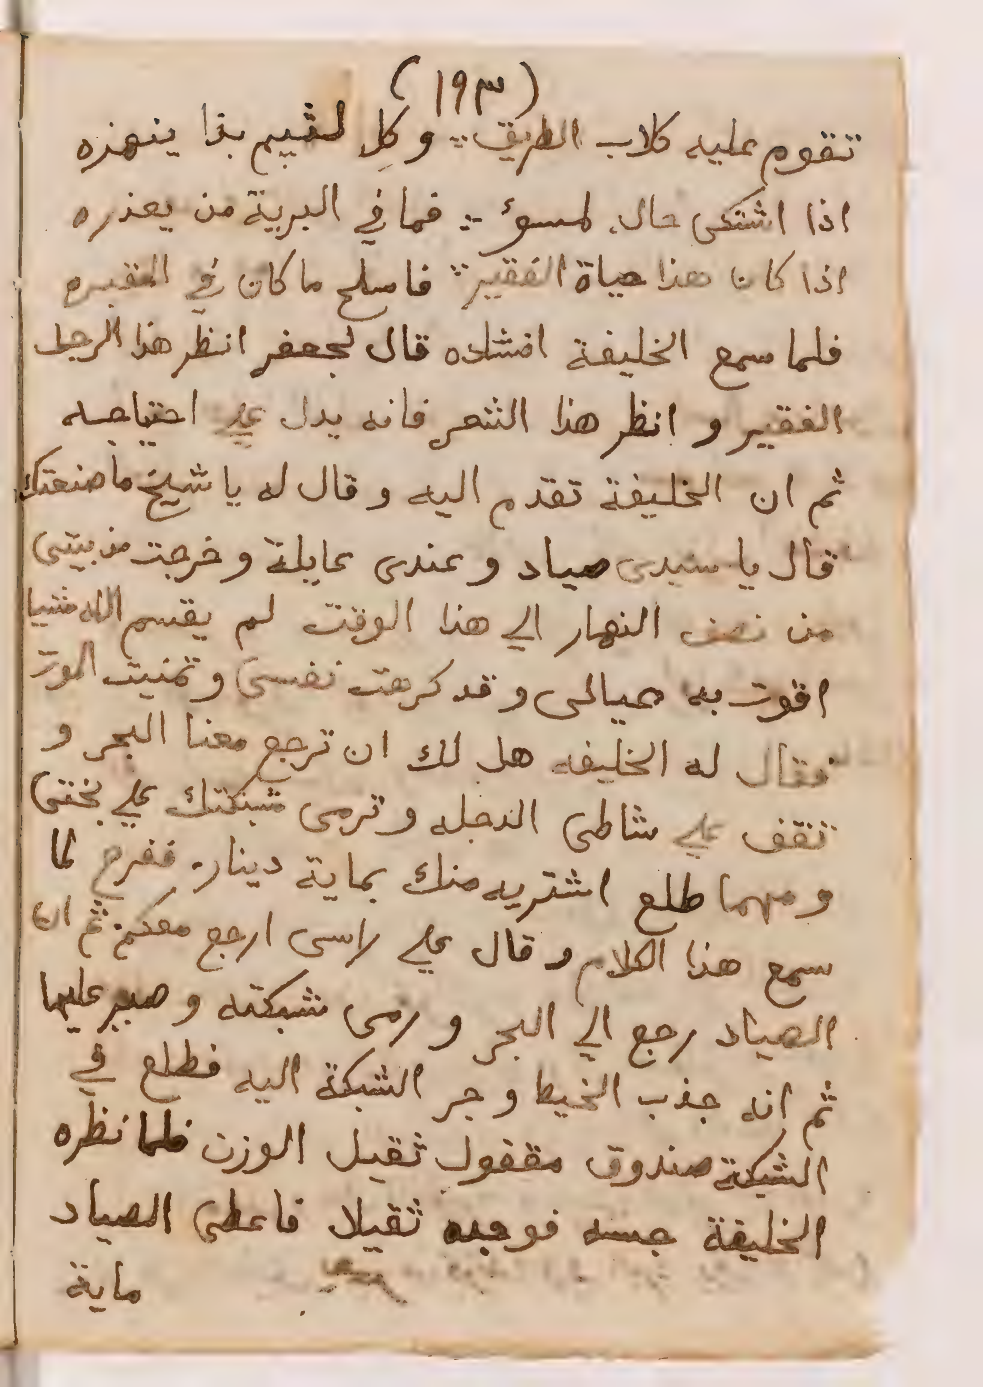 (١٩٣)
تقوم عليه كلاب الطريق ∴ وكل لئيم بذا ينهزه
اذا اشتكى حاله لمسوئ ∴ فما في البرية من يعذره
اذا كان هذا حياة الفقير ∴ فاصلح ما كان في المقبره
فلما سمع الخليفة انشاده قال لجعفر انظر هذا الرجل
الفقير و انظر هذا الشعر فانه يدل علي احتياجه
ثم ان الخليفة تقدم اليه و قال له يا شيخ ما صنعتك
قال يا سيدى صياد و عندى عايلة و خرجت من بيتى
من نصف النهار الي هذا الوقت لم يقسم الله شيا
اقوت به عيالى و قد كرهت نفسى و تمنيت الموت
فقال له الخليفه هل لك ان ترجع معنا البحر و
تقف علي شاطى الدجله و ترمى شبكتك علي بختى
و مهما طلع اشتريه منك بماية دينار. ففرح لما
سمع هذا الكلام و قال علي راسى ارجع معكم. ثم ان
الصياد رجع الي البحر و رمى شبكته و صبر عليها
ثم انه جذب الخيط و جر الشبكة اليه فطلع في
الشبكة صندوق مقفول ثقيل الوزن فلما نظره
الخليفة جسه فوجده ثقيلا فاعطى الصياد
ماية